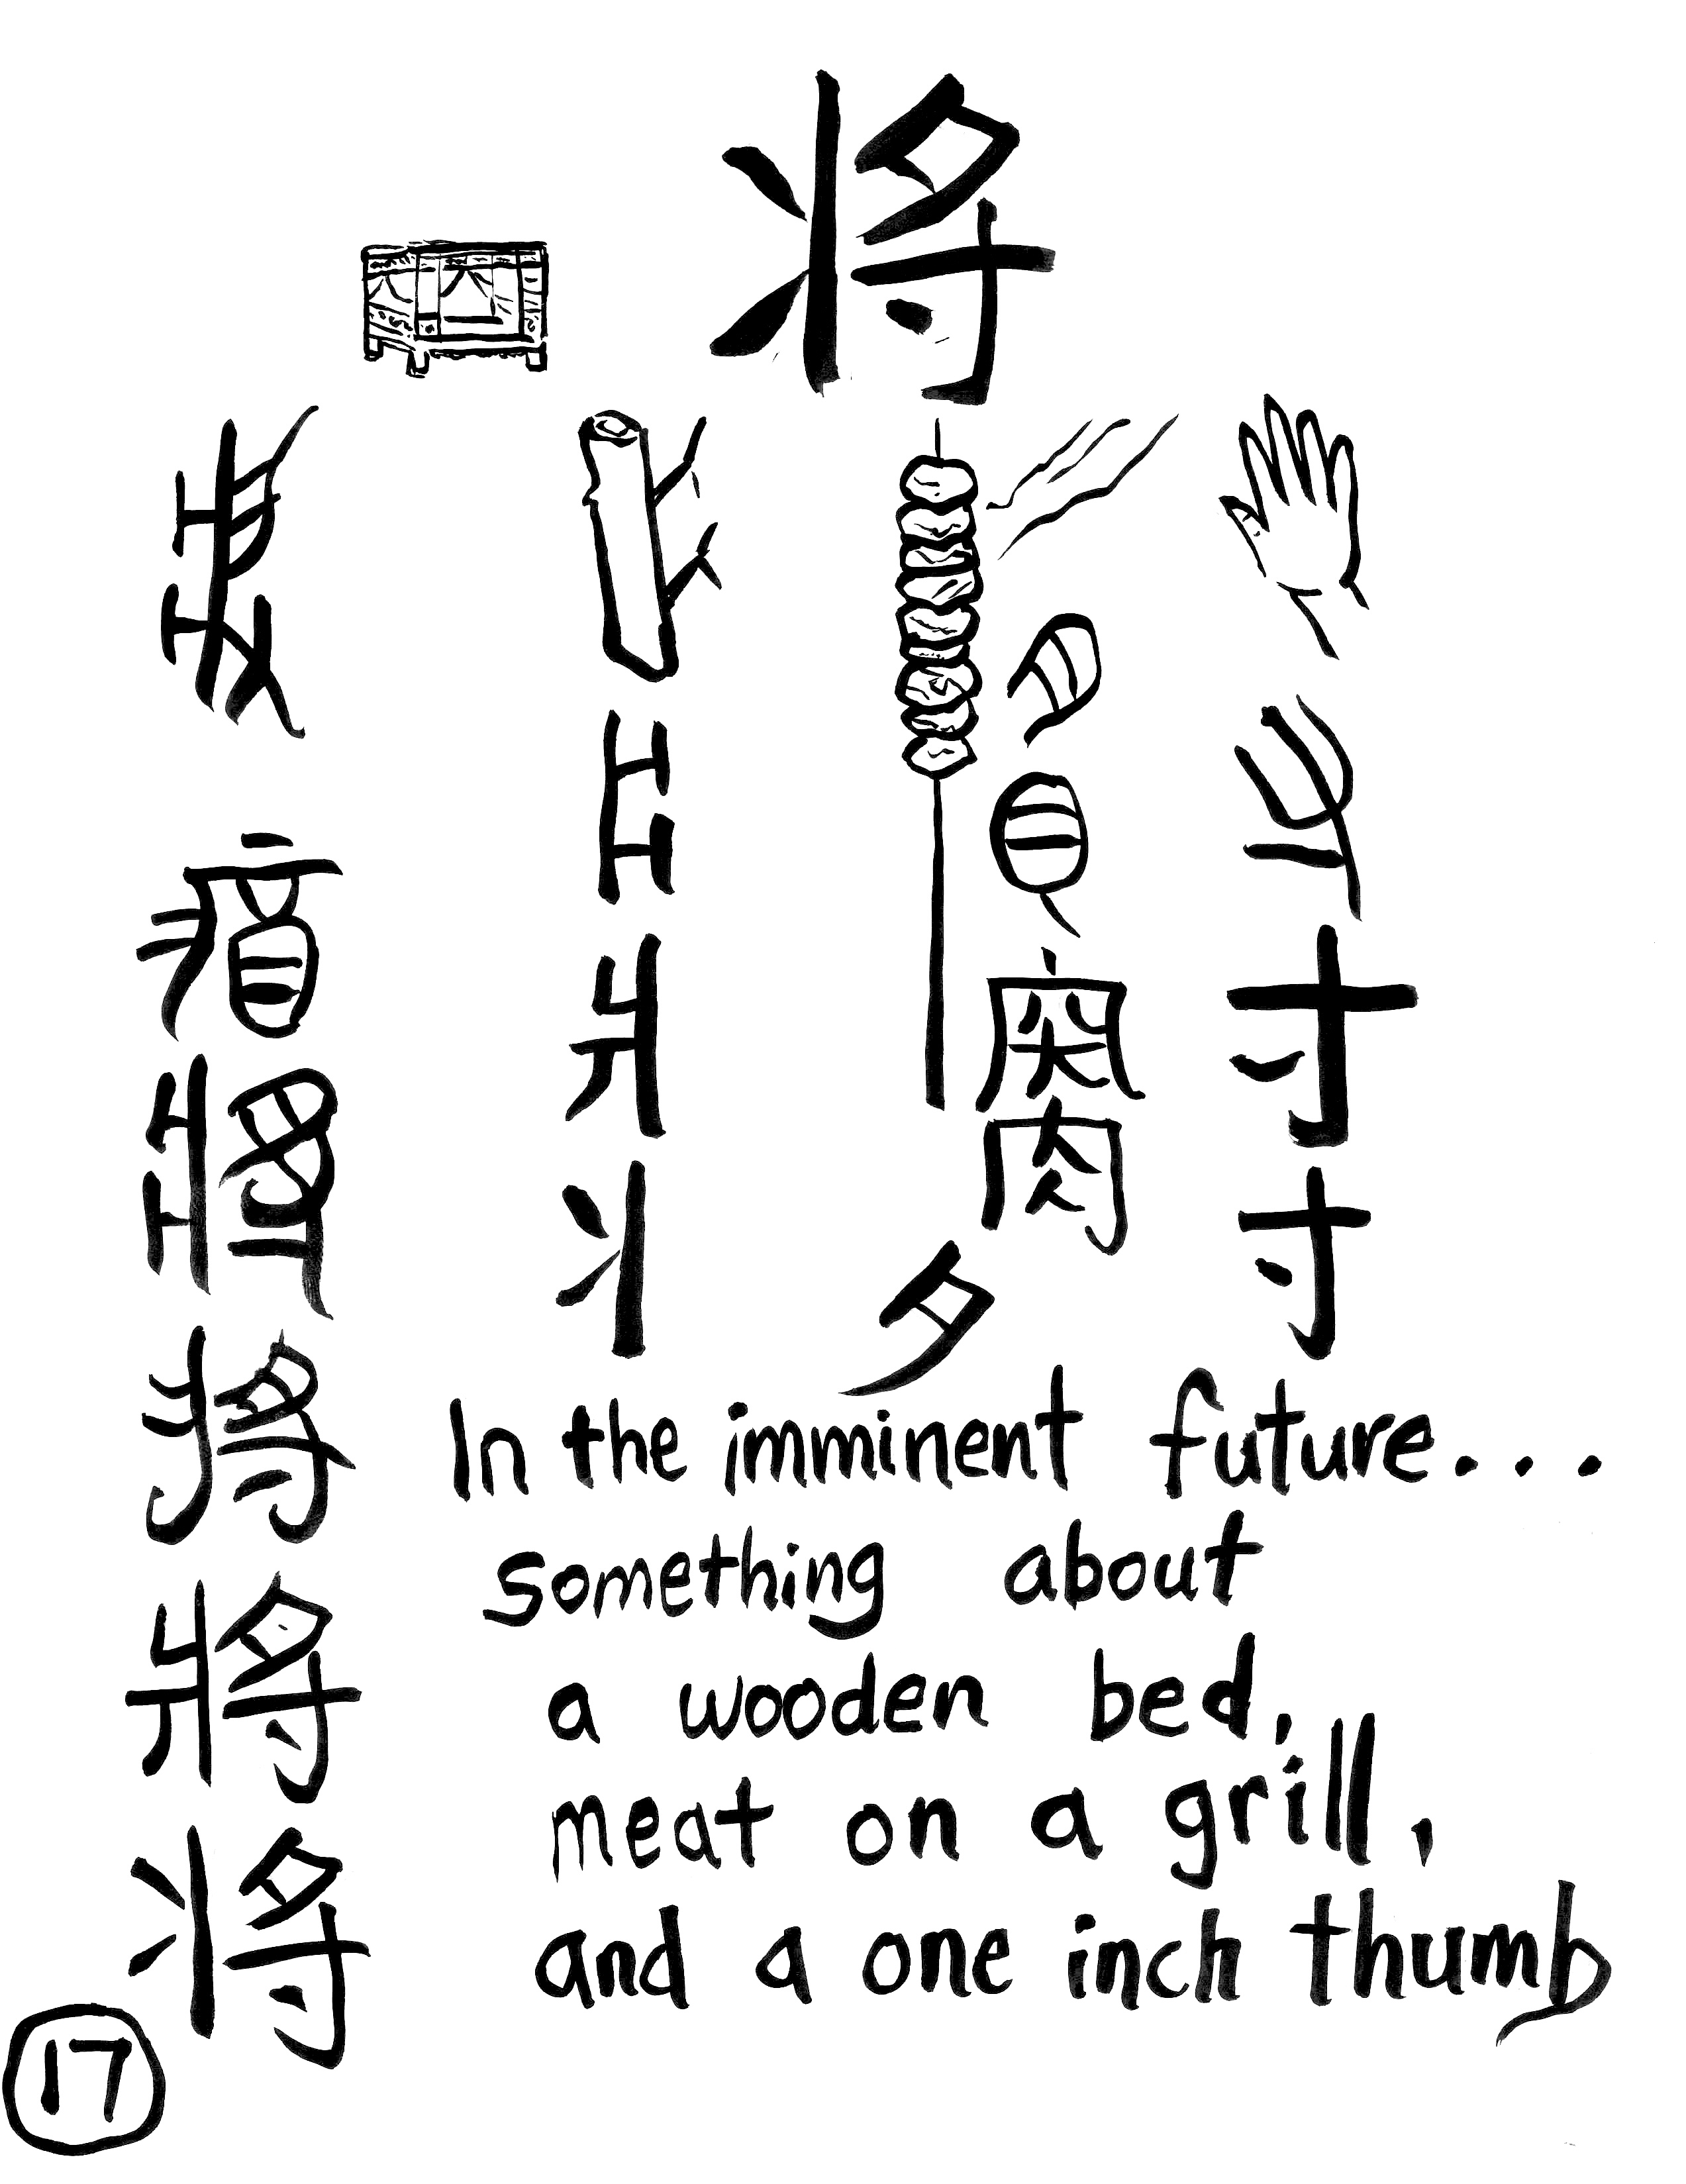 将
爿
丬
肉
夕
寸
寸
將
將
将
In the imminent future...
something about
a wooden bed,
meat on a grill,
and a one inch thumb
17